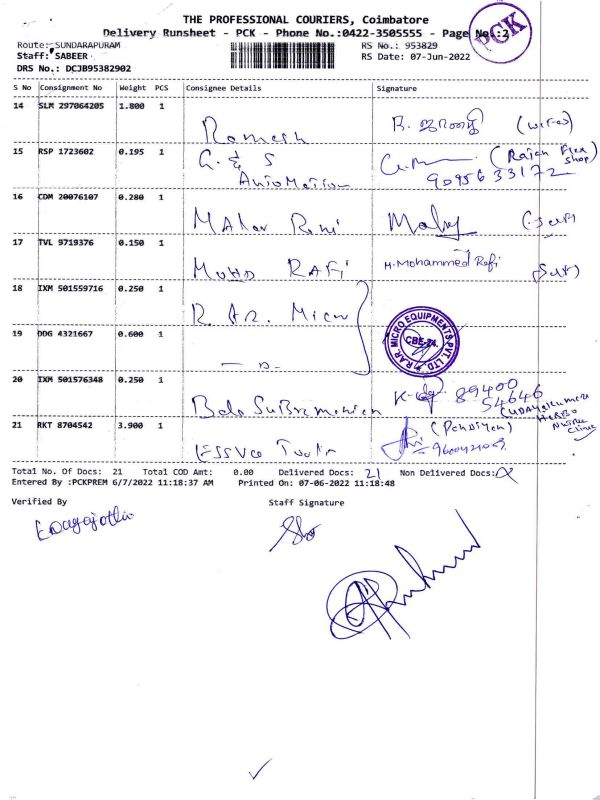 THE PROFESSIONAL COURIERS, Coimbatore
Delivery Runsheet - PCK - Phone No.:0422-3505555 - Page No.:2
PCK
Route: SUNDARAPURAM
RS No.: 953829
Staff: SABEER
RS Date: 07-Jun-2022
DRS No.: DCJB95382902
S No Consignment No Weight PCS Consignee Details Signature
14 SLM 297064205 1.800 1
Ramesh
15 RSP 1723602 0.195 1
G. & S
Automation
(Rajan Flex
Shop)
9095633172
16 CDM 20076107 0.280 1
17 TVL 9719376 0.150 1
Mohd RAFi
H.Mohammed Rafi
(Self)
18 IXM 501559716 0.250 1
R. AR. Micro
19 DDG 4321667 0.600 1
R.AR. MICRO EQUIPMENTS PVT. LTD.
CBE-24.
20 IXM 501576348 0.250 1
Bala Subramanian
89400
54646
21 RKT 8704542 3.900 1
(Pandiyan)
Total No. Of Docs: 21 Total COD Amt: 0.00 Delivered Docs: 21 Non Delivered Docs:
Entered By :PCKPREM 6/7/2022 11:18:37 AM Printed On: 07-06-2022 11:18:48
Verified By
Staff Signature